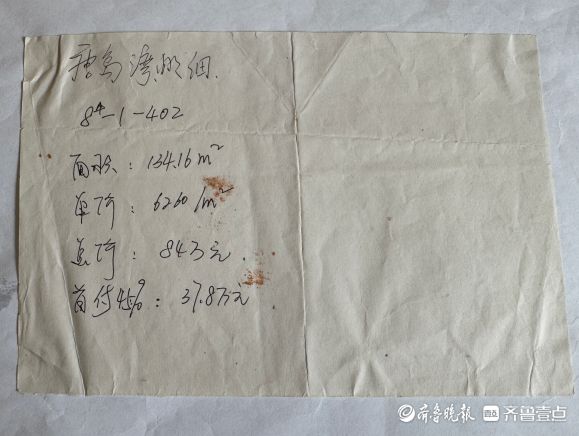 8#-1-402
面积：134.16m²
单价：6260/m²
总价：84万元
首付45%：37.8万元
齐鲁晚报 齐鲁壹点